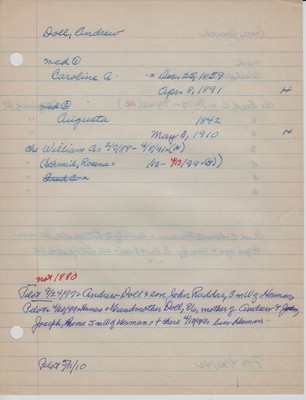 Doll, Andrew
med ①
Caroline A. = Dec. 25, 1859
Apr. 8, 1891 H
med ②
Augusta 1842
May 3, 1910 H
chs William A = 2/2/88 - 4/4/91 (H)
(Schmid, Rosena = 1/3 - 4/13/99 (H))
not 1880
Pilot 9/24/97 = Andrew Doll & son, John Raddoz 3 m W of Herman
Pilot 4/20/99 Herman = Grandmother Doll, 86, mother of Andrew &
Joseph, Home 5 m W of Herman & there 4/10/99, bur. Herman
Pilot 5/11/10